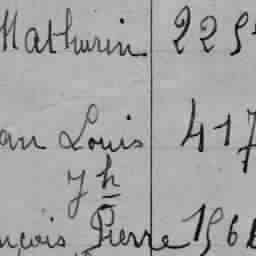 Mathurin 225
an Louis 417
Jh
nçois Pierre 196